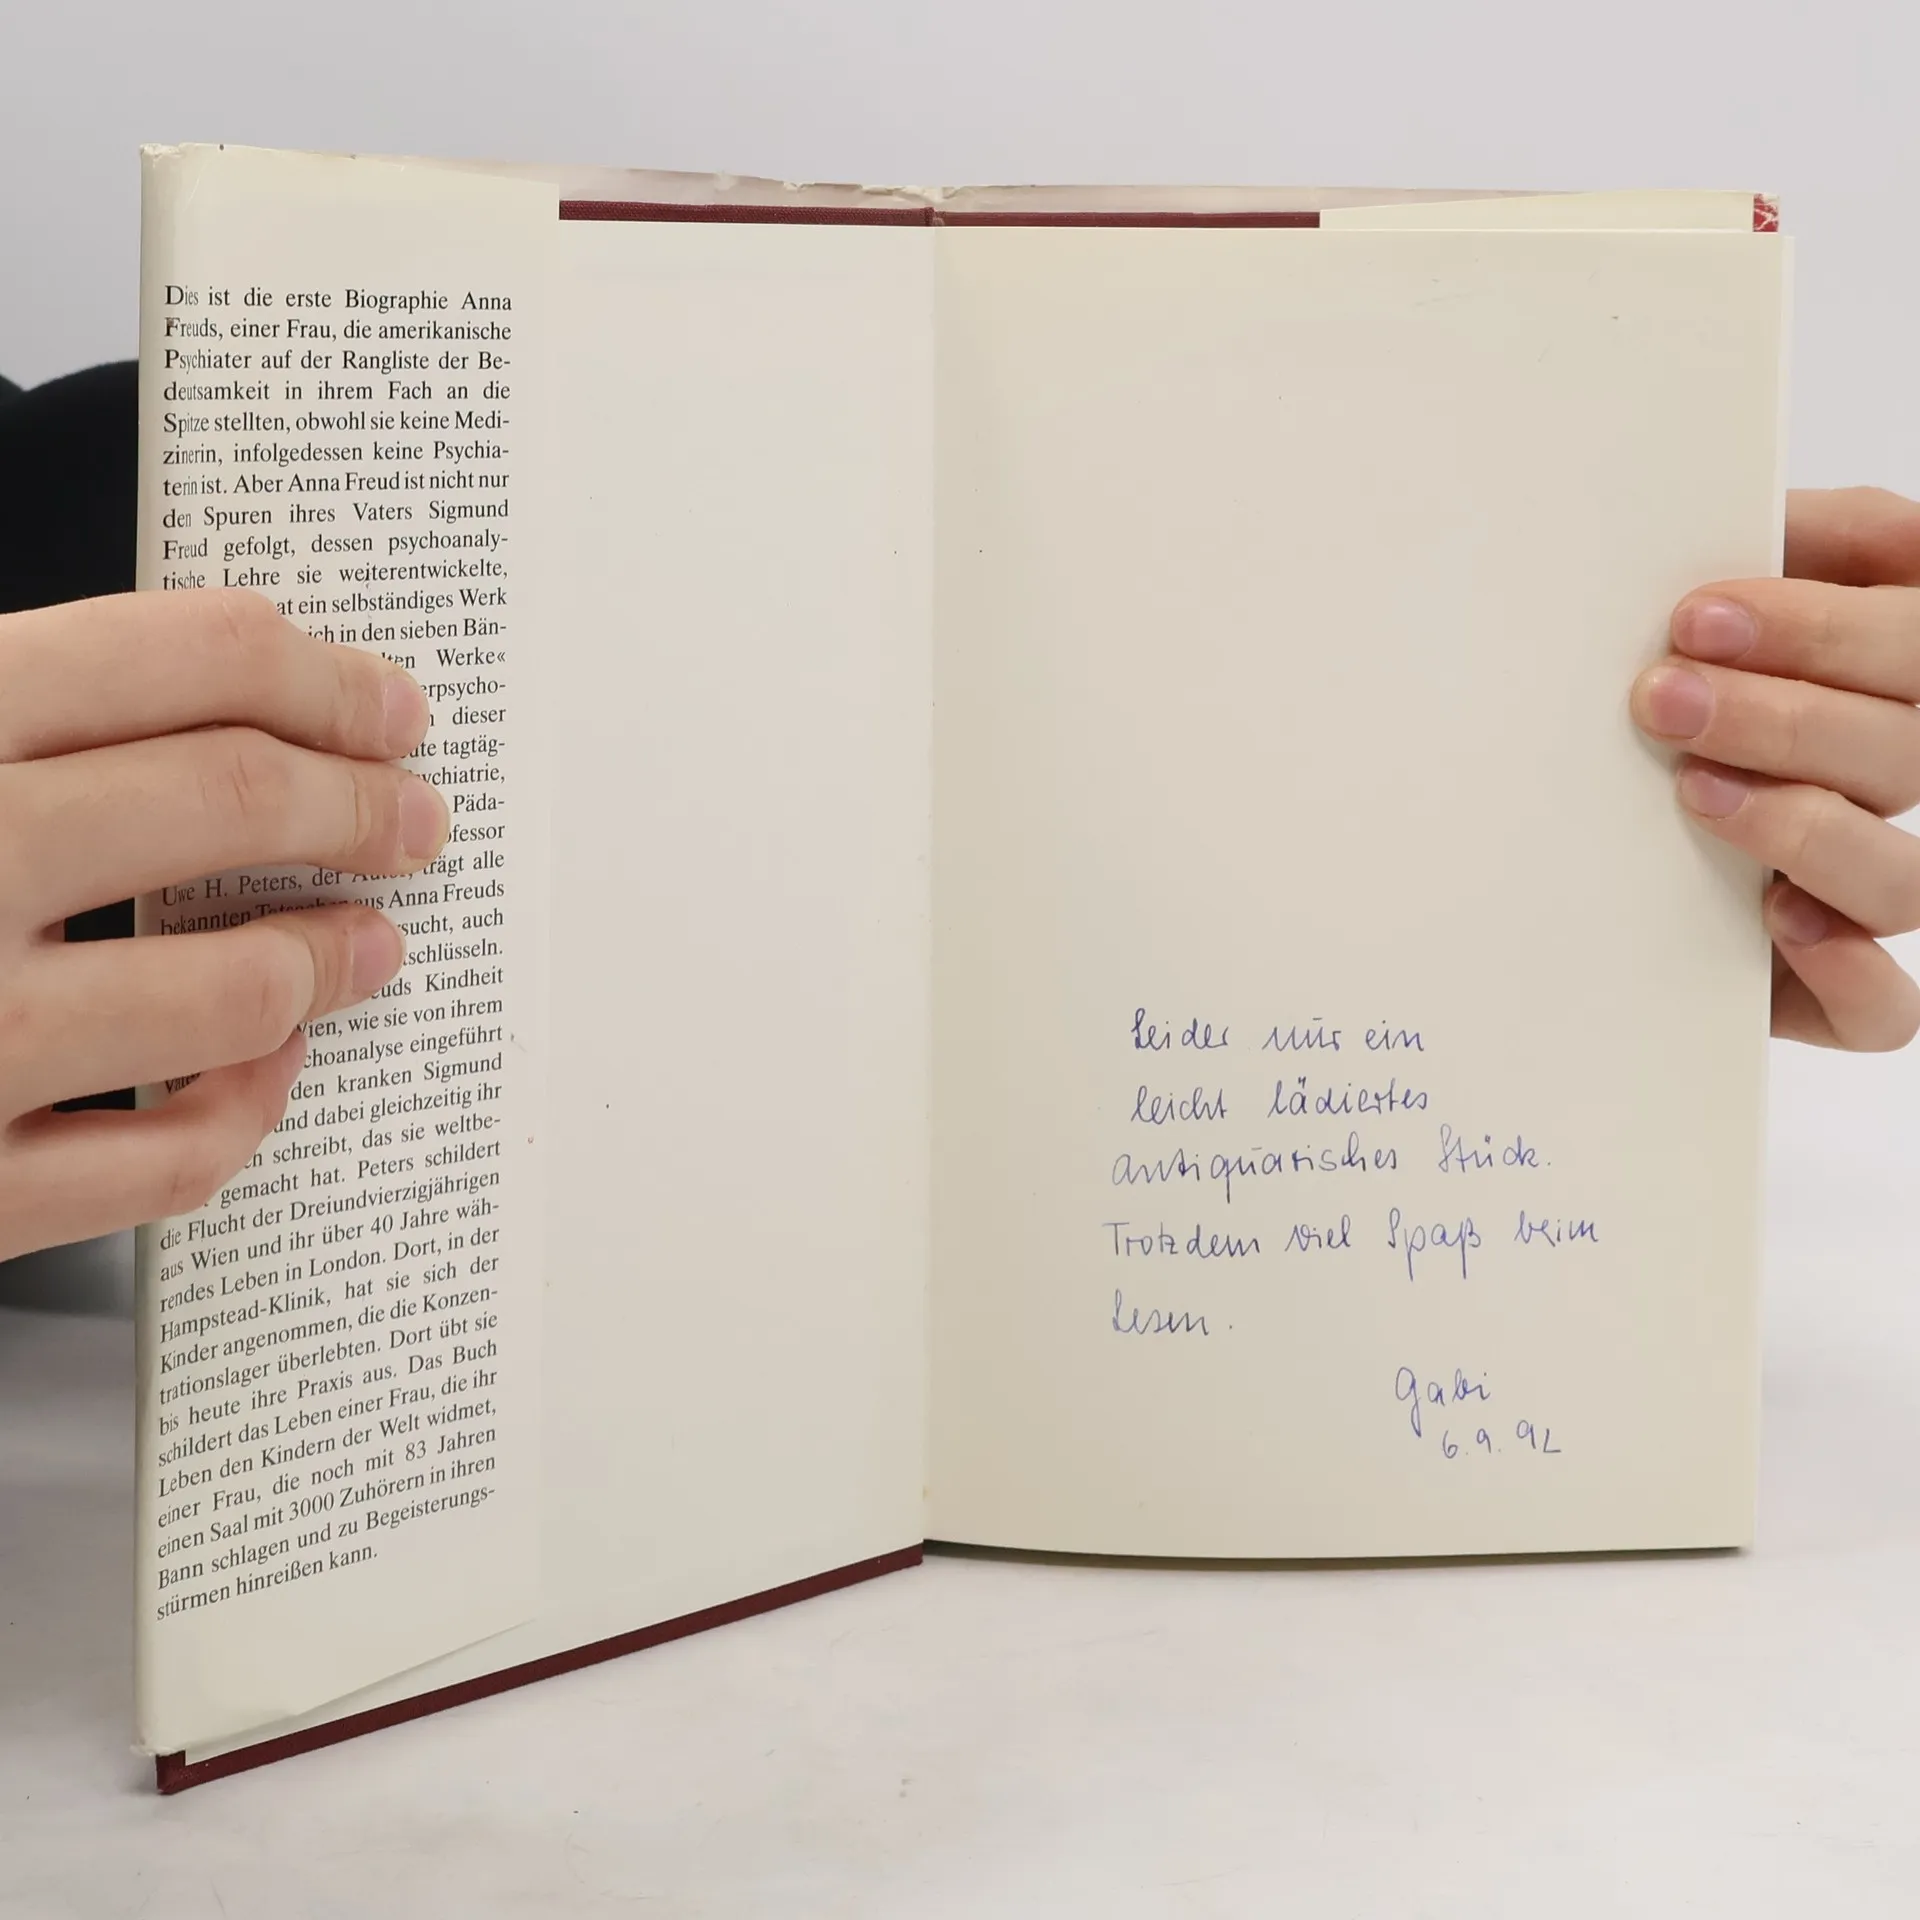 Dies ist die erste Biographie Anna
Freuds, einer Frau, die amerikanische
Psychiater auf der Rangliste der Be-
deutsamkeit in ihrem Fach an die
Spitze stellten, obwohl sie keine Medi-
zinerin, infolgedessen keine Psychia-
terin ist. Aber Anna Freud ist nicht nur
den Spuren ihres Vaters Sigmund
Freud gefolgt, dessen psychoanaly-
tische Lehre sie weiterentwickelte,
ein selbständiges Werk
in den sieben Bän-
Werke«
dieser
tagtäg-
Päda-
Uwe H. Peters, der alle
bekannten Anna Freuds
auch
Kindheit
wie sie von ihrem
eingeführt
den kranken Sigmund
und dabei gleichzeitig ihr
schreibt, das sie weltbe-
gemacht hat. Peters schildert
die Flucht der Dreiundvierzigjährigen
aus Wien und ihr über 40 Jahre wäh-
rendes Leben in London. Dort, in der
Hampstead-Klinik, hat sie sich der
Kinder angenommen, die die Konzen-
trationslager überlebten. Dort übt sie
bis heute ihre Praxis aus. Das Buch
schildert das Leben einer Frau, die ihr
Leben den Kindern der Welt widmet,
einer Frau, die noch mit 83 Jahren
einen Saal mit 3000 Zuhörern in ihren
Bann schlagen und zu Begeisterungs-
stürmen hinreißen kann.
Leider nur ein
leicht lädiertes
antiquarisches Stück.
Trotzdem viel Spaß beim
Lesen.
Gabi
6.9.92